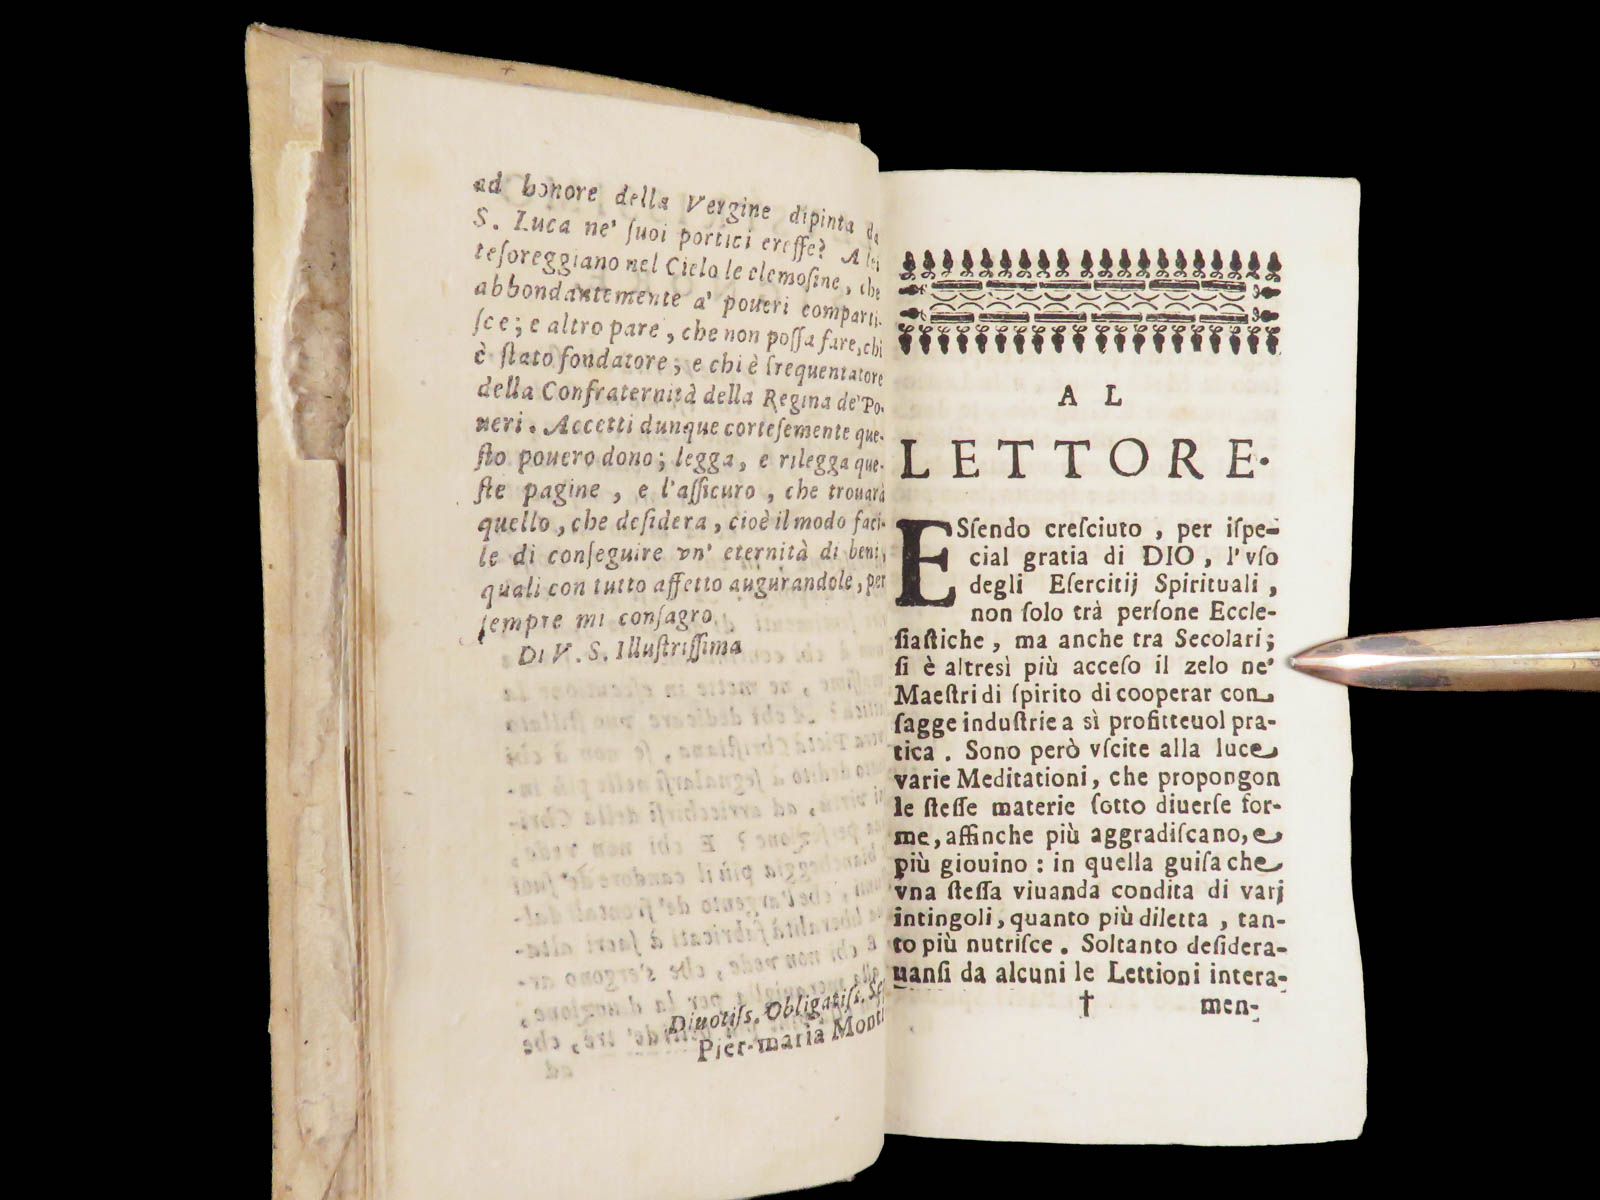 ad honore della Vergine dipinta da
S. Luca ne' ſuoi portici ereſſe? A lei
teſoreggiano nel Cielo le elemoſine, che
abbondantemente a' poueri comparti-
ſce; e altro pare, che non poſſa fare, chi
è ſtato fondatore; e chi è frequentatore
della Confraternità della Regina de' Po-
ueri. Accetti dunque corteſemente que-
ſto pouero dono; legga, e rilegga que-
ſte pagine, e l'aſſicuro, che trouarà
quello, che deſidera, cioè il modo faci-
le di conſeguire vn' eternità di beni,
quali con tutto affetto augurandole, per
ſempre mi conſagro
Di V. S. Illuſtriſſima
Diuotiſs. Obligatiſs.
Pier-maria
AL
LETTORE.
ESſendo creſciuto, per iſpe-
cial gratia di DIO, l'vſo
degli Eſercitij Spirituali,
non ſolo trà perſone Eccle-
ſiaſtiche, ma anche tra Secolari;
ſi è altresì più acceſo il zelo ne'
Maeſtri di ſpirito di cooperar con
ſagge induſtrie a sì profitteuol pra-
tica. Sono però vſcite alla luce
varie Meditationi, che propongon
le ſteſſe materie ſotto diuerſe for-
me, affinche più aggradiſcano, e
più giouino: in quella guiſa che
vna ſteſſa viuanda condita di varj
intingoli, quanto più diletta, tan-
to più nutriſce. Soltanto deſidera-
uanſi da alcuni le Lettioni intera-
† men-